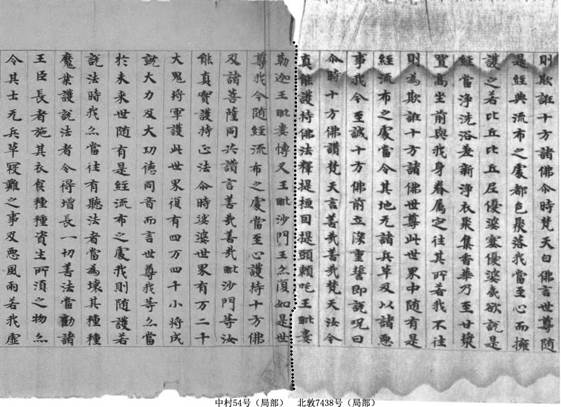 則欺誑十方諸佛尒時梵天白佛言世尊隨
是經典流布之處都邑聚落我當至心而擁
護之若比丘比丘尼優婆塞優婆夷欲說是
經當淨洗浴著新淨衣聚集香華乃至甘漿
置高坐前與我身眷屬之往其所若我不往
則為欺誑十方諸佛世尊此世界中隨有是
經流布之處當令其地无諸兵革及以諸惡
事我今至誠十方佛前立深重誓即說呪曰
尒時十方佛讚梵天言善哉善哉梵天法令
真能護持佛法釋提桓因提頭賴吒王毗婁
勒迦王毗婁博叉王毗沙門王亦復如是世
尊我今隨經流布之處當至心護持十方佛
及諸菩薩同共讚言善哉善哉毗沙門等汝
能真實護持正法尒時娑婆世界有万二千
大鬼將軍護此世界復有四万四千小將成
就大力及大功德同音而言世尊我等亦當
於未來世隨有是經流布之處我則隨護若
說法時我亦當往有聽法者當為壞其種種
魔業護說法者令得增長一切善法當勸諸
王臣長者施其衣食種種資生所須之物亦
令其土无兵革疫難之事及惡風雨若我虛
中村54号（局部） 北敦7438号（局部）